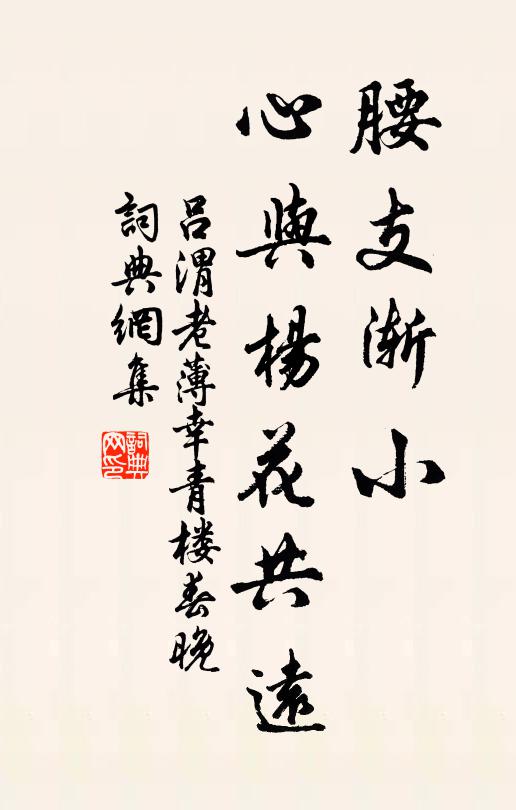 腰支漸小
心與楊花共遠
吕渭老薄幸青楼春晚
詞典網集
詞典網印